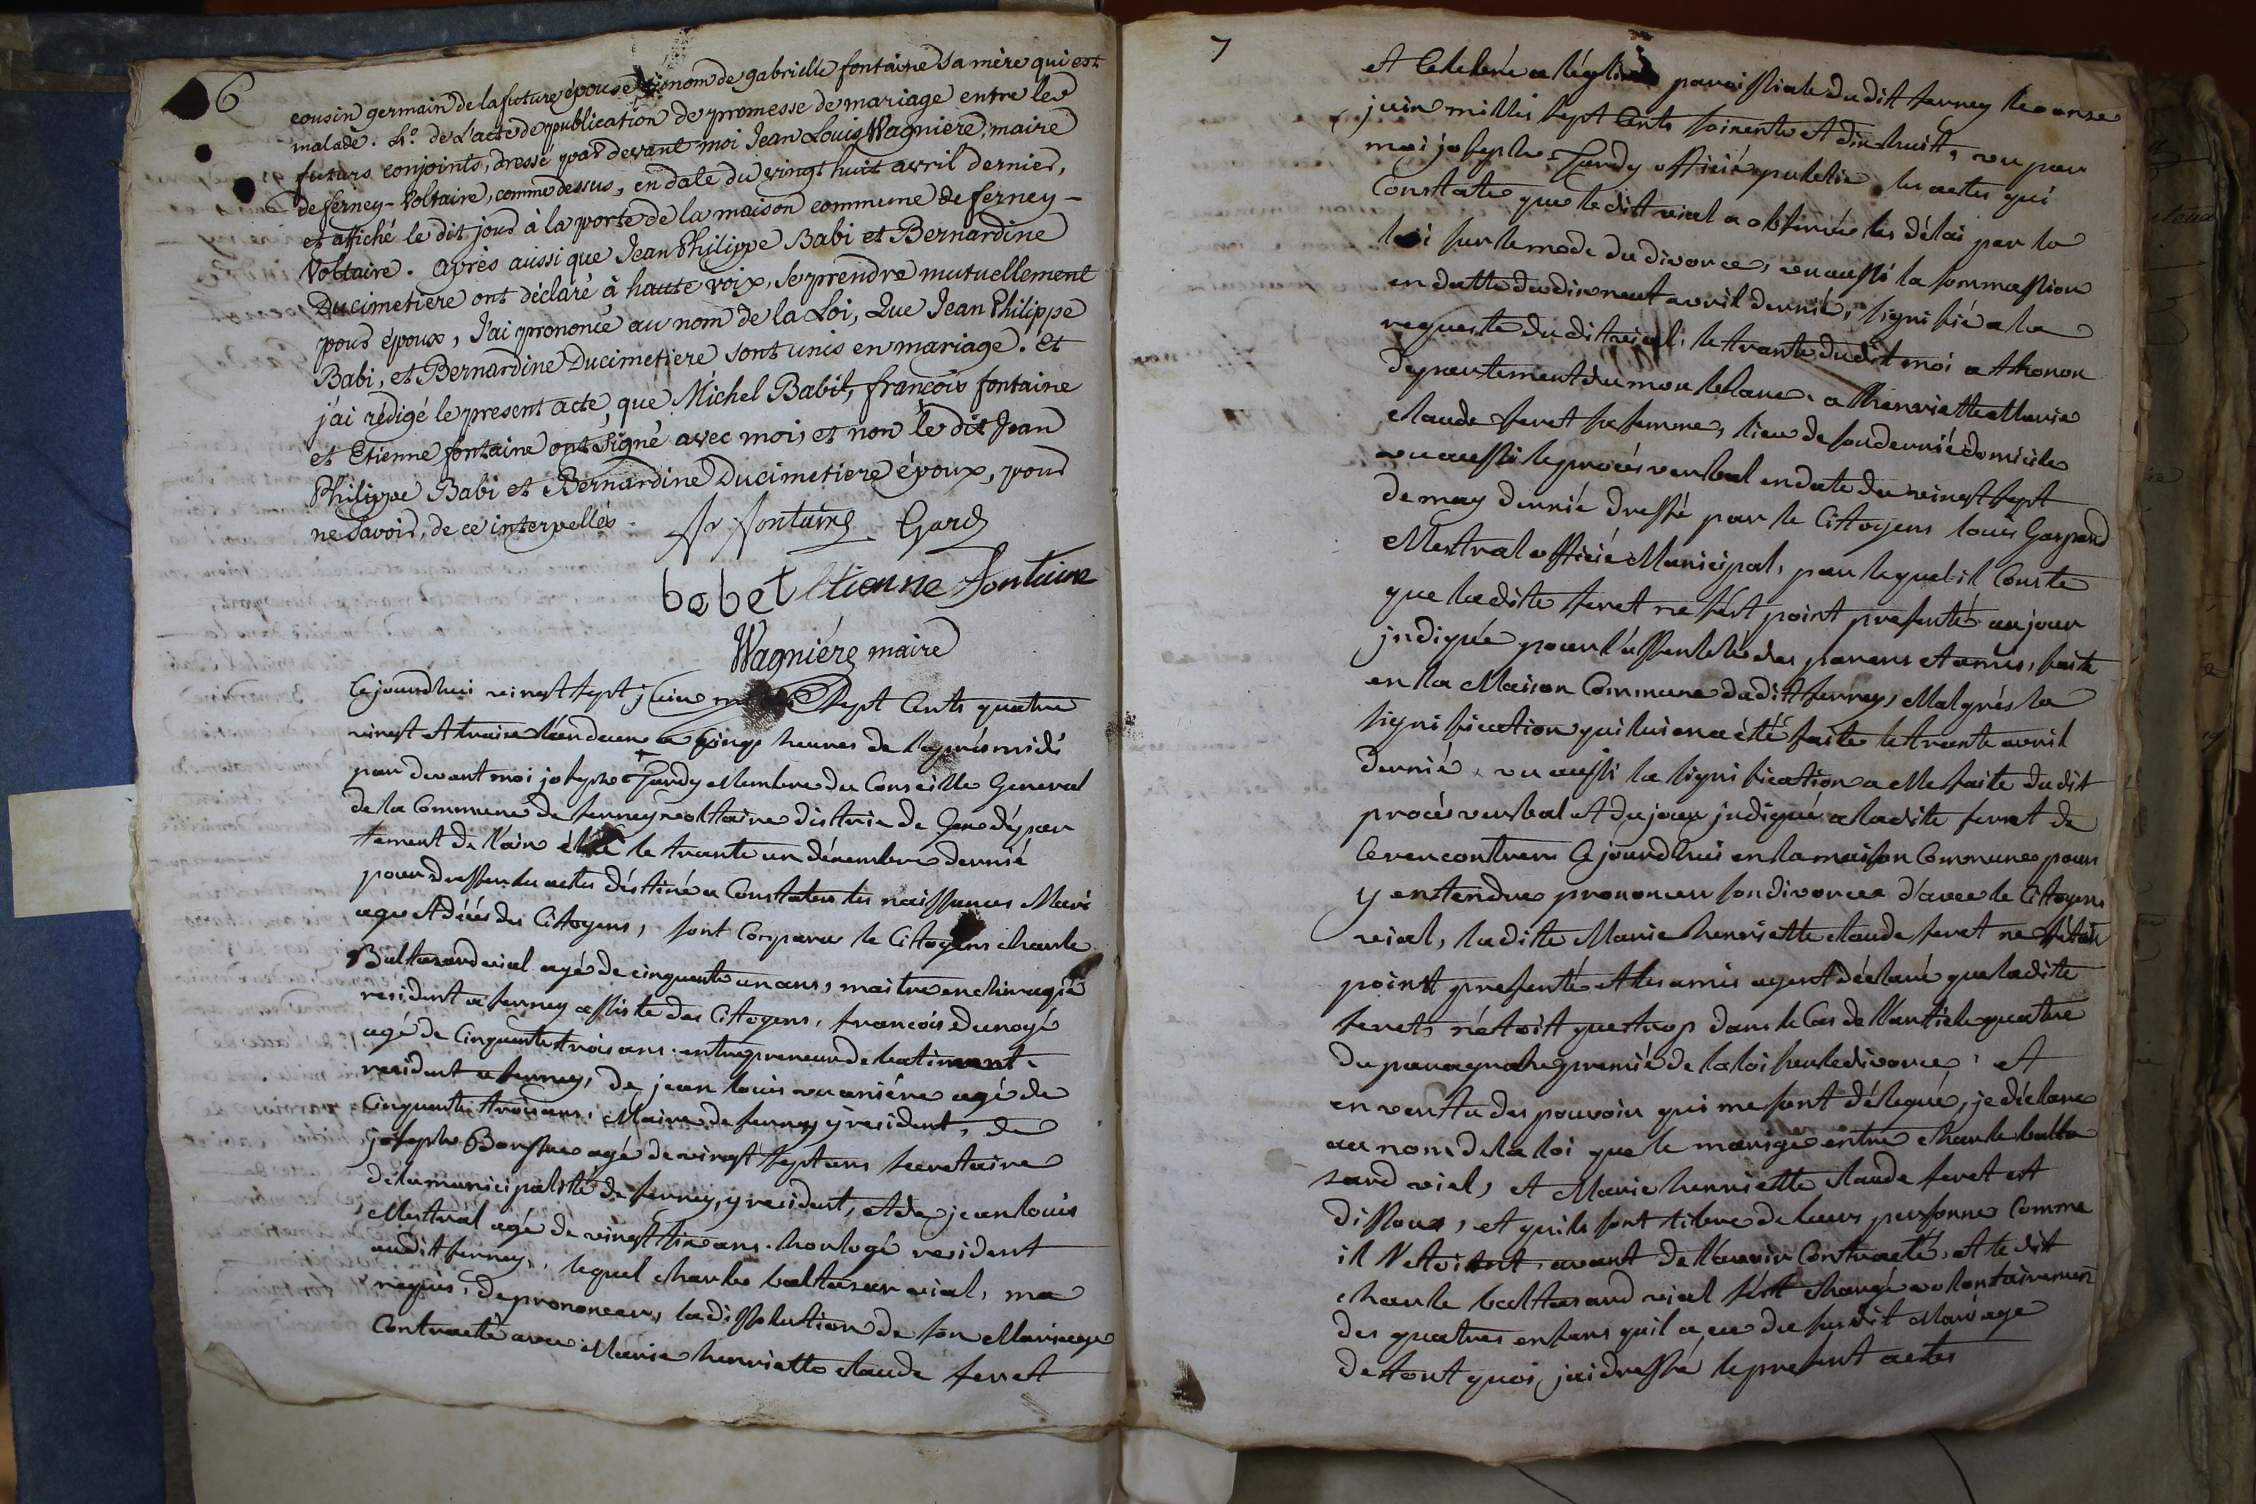 6
cousin germain de la future épouse au nom de gabrielle fontaine sa mère qui est
malade. 4.º de L'acte de publication de promesse de mariage entre les
futurs conjoints, dressé par devant moi Jean Louis Wagniere, maire
de ferney-Voltaire, comme dessus, en date du vingt huit avril dernier,
et affiché le dit jour à la porte de la maison commune de ferney-
Voltaire. après aussi que Jean Philippe Babi et Bernardine
Ducimetiere ont déclaré à haute voix, se prendre mutuellement
pour époux, J'ai prononcé au nom de la Loi, Que Jean Philippe
Babi, et Bernardine Ducimetiere sont unis en mariage. et
j'ai rédigé le present acte, que Michel Babit, françois fontaine
et Etienne fontaine ont signé avec moi, et non le dit Jean
Philippe Babi et Bernardine Ducimetiere époux, pour
ne savoir, de ce interpellés.
fr fontaine Gard
bebet Etienne Fontaine
Wagniére maire
Cejourdhui vinst sept juin sept Cents quatre
vinst et traise l'an deux a heures de l'aprés midi
par devant moi joseph Tardy Membre du Conseille General
de la Commune de ferney voltaire distric de Gex dépar
tement de l'ain élu le trante un décembre dernié
pour dresser les actes déstiné a Constater les naissances Mari
age et décés des Citoyens, sont Comparu le Citoyens charle
Baltasard vial agé de cinquante un ans, maitre en chirurgie
resident a ferney assisté des Citoyens, francois dunoyé
agé de Cinquante trois ans entrepreneur de batiment
resident a ferney, de jean louis vuaniére agé de
Cinquante trois ans, Maire de ferney y resident, de
joseph agé de vinst sept ans secretaire
de la municipalité de ferney, y resident, et de jean louis
Mestral agé de vinst six ans horlogé resident
audit ferney, lequel charle baltasar vial, ma
requis, de prononcer, la dissolution de son Mariage
Contracté avec Marie henriette claude ferret
7
et Celebrée a léglise paroissiale du dit ferney le onze
juin milles sept Cents soixente et dix huitt, vu par
moi joseph Tardy officié publie les actes qui
Constate que le dit vial a observée les délai par la
loi sur le mode du divorce, vu aussi la sommation
en datte du dixneut avril dernié, signifié a la
requeste du dit vial, le trante dudit moi a thonon
departement du mon blanc a henriette Marie
claude feret sa femme, lieu de son dernié domicile
vu aussi le procés verbal en date du vinst sept
de may dernié dressé par le Citoyens louis Gaspard
Mestral officié Municipal, par lequel il Conste
que ladite feret ne sést point presenté au jour
jndiqué pour l'assemblé des parens et amis, faite
en la Maison Commune dudit ferney, Malgrés la
signification qui lui en a été faite le trante avril
dernié, vu aussi la signification a elle faite dudit
procés verbal et du jour jndiqué a ladite ferret de
le rencontrer Cejourdhui en la maison Commune pour
y entendre prononcer son divorce d'avec le Citoyens
vial, la dite Marie henriette claude feret ne
point presenté et les amis ayent déclaré que ladite
feret, nétoit que trop dans le Cas de l'article quatre
du paragraphe premié de la loi sur le divorce, et
en vertu des pouvoir qui me sont délegué, je déclare
au nom de la loi que le marige entre charle balta
sard vial, et Marie henriette claude feret est
dissous, et quils sont libre de leurs personne Comme
il l'etoitent avant de l'avoir Contracté, et le dit
charle baltasard vial sést chargé volontairement
des quatres enfans quil a eu du susdit Mariage
de tout quoi jai dressé le present actes